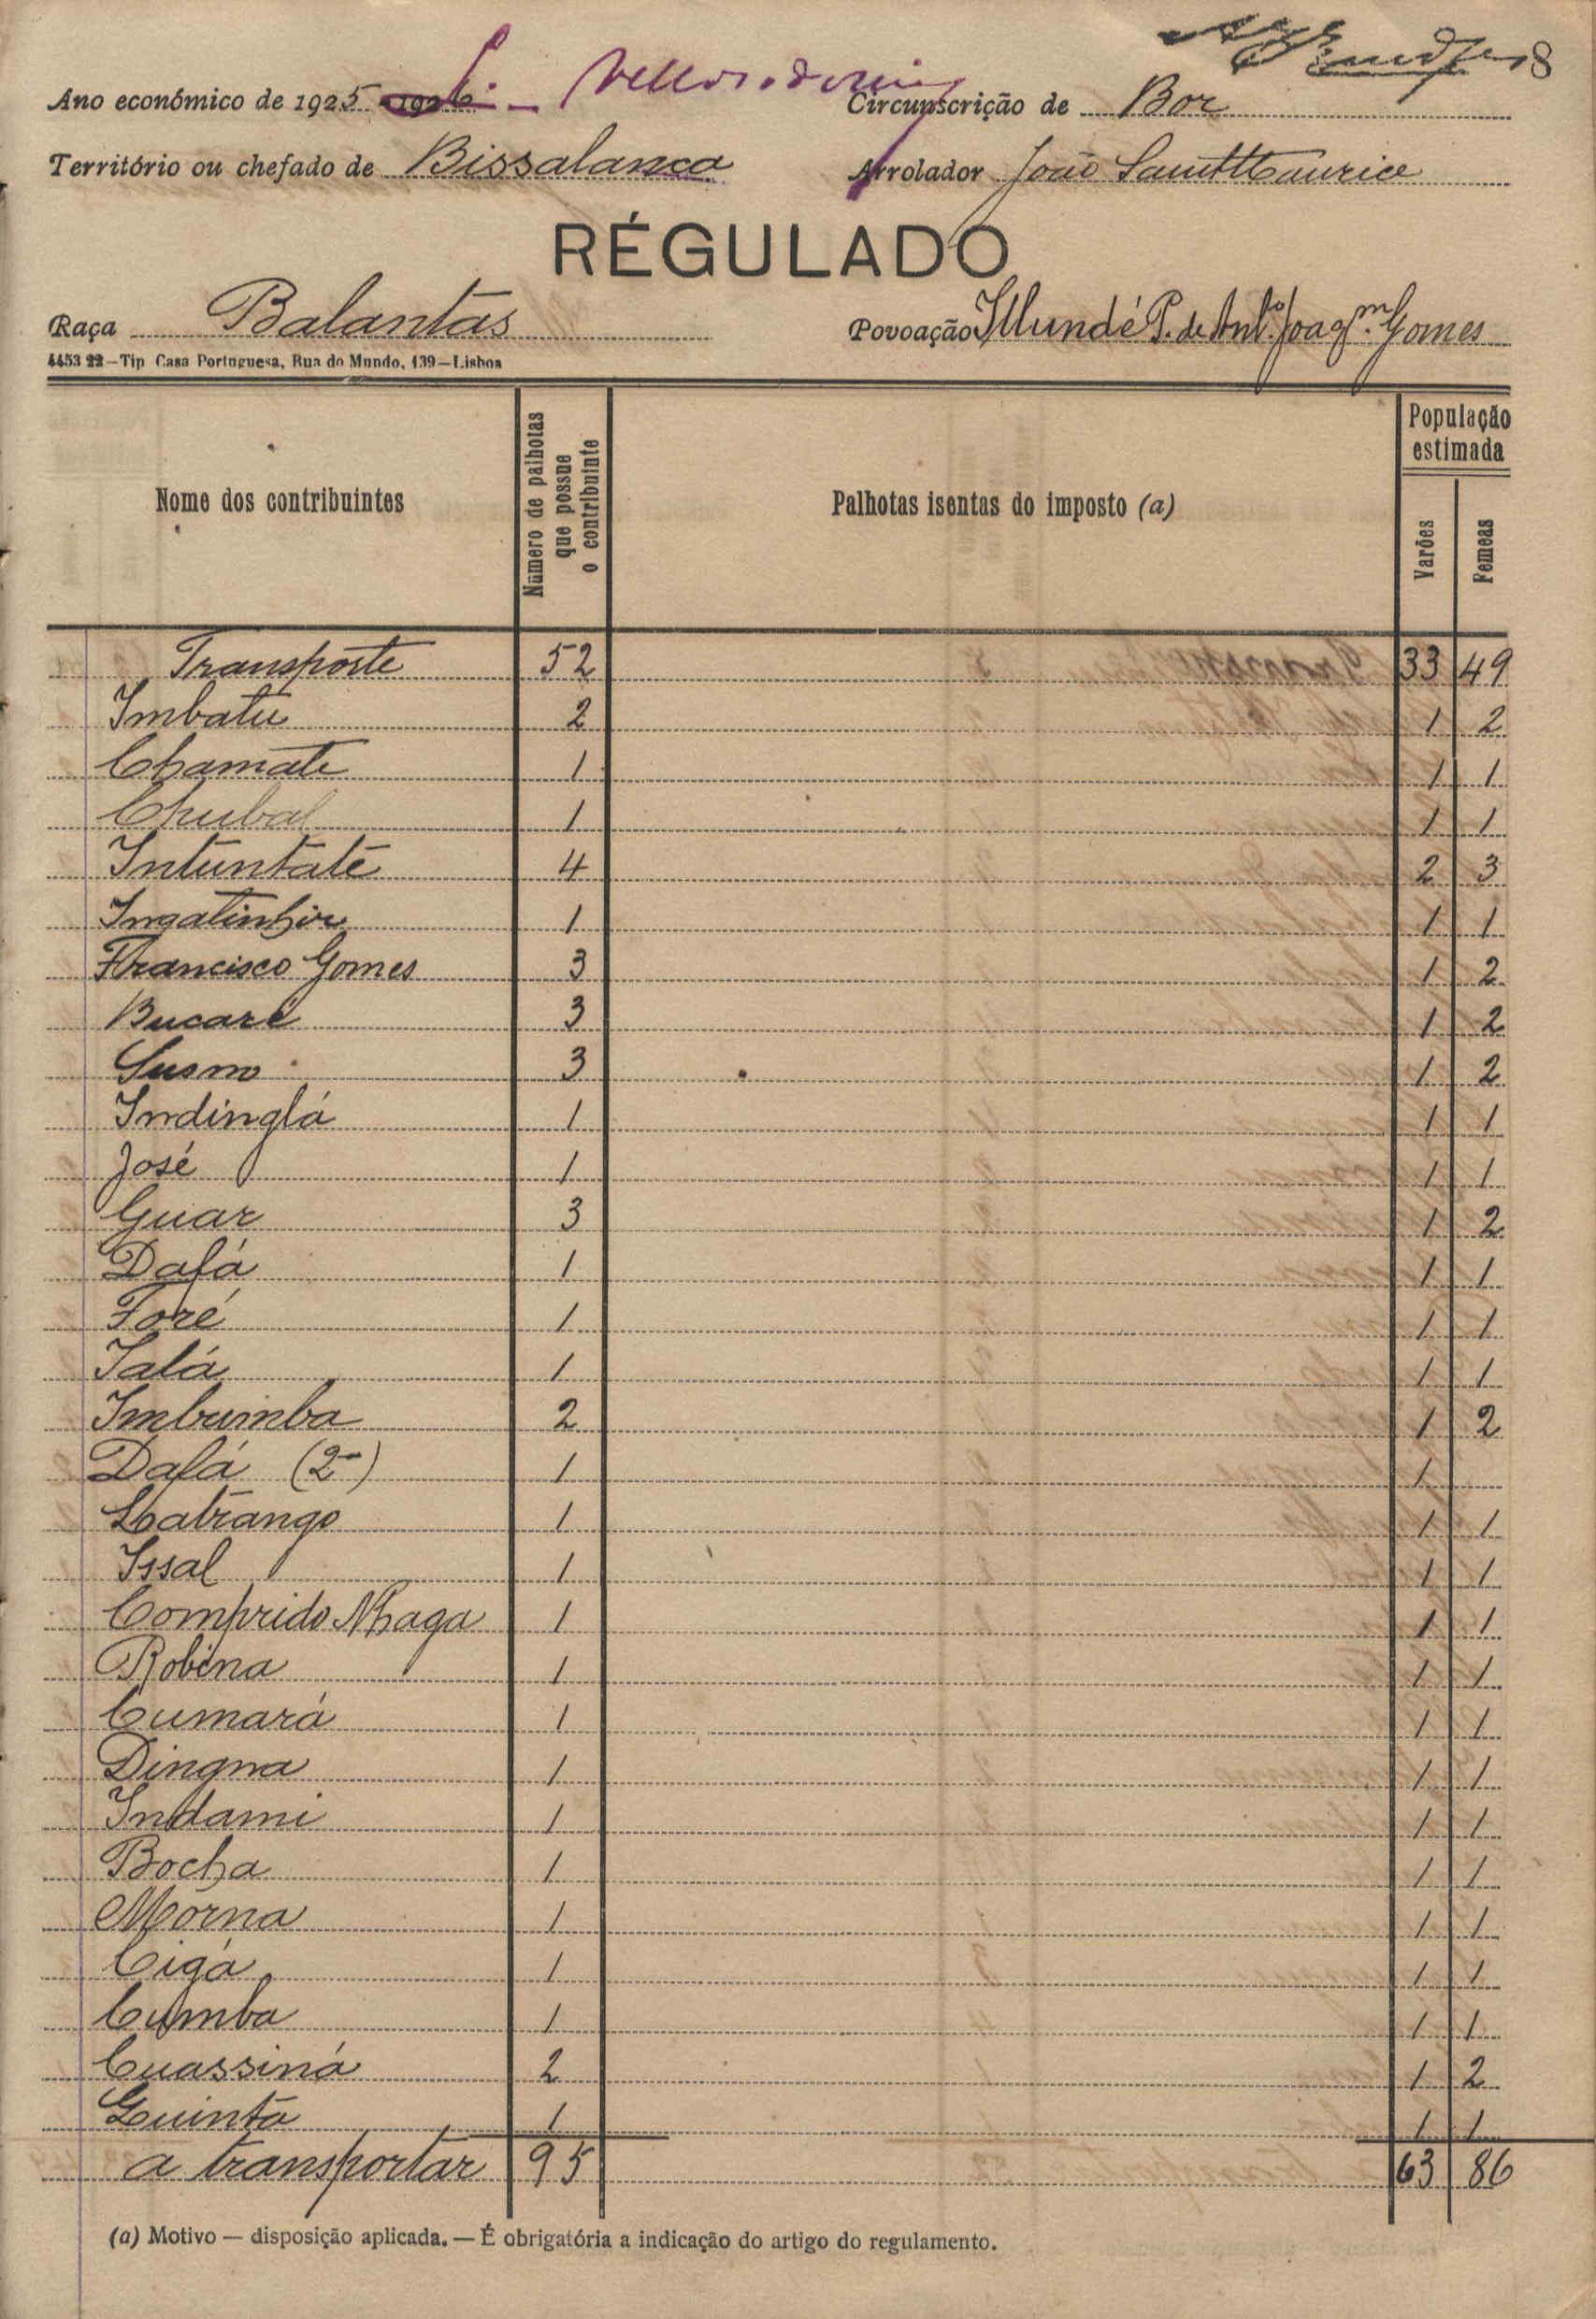 8
Ano económico de 1925-1926
Circunscrição de Bor
Território ou chefado de Bissalanca
Arrolador João
RÉGULADO
Raça Balantas
Povoação Illundé P. de Antº. Joaqm. Gomes
4453 22—Tip Casa Portuguesa, Rua do Mundo, 139—Lisboa
Nome dos contribuintes
Número de palhotas que possue o contribuinte
Palhotas isentas do imposto (a)
População estimada
Varões
Femeas
Transporte 52 33 49
Imbatú 2 1 2
Chamate 1 1 1
Chubal 1 1 1
Intuntaté 4 2 3
Ingatinhir 1 1 1
Francisco Gomes 3 1 2
Bucaré 3 1 2
Susno 3 1 2
Indinglá 1 1 1
José 1 1 1
Guar 3 1 2
Dafá 1 1 1
Foré 1 1 1
Ialá 1 1 1
Imbumba 2 1 2
Dafá (2º) 1 1
Batrango 1 1 1
Issal 1 1 1
Comprido Nhaga 1 1 1
Robina 1 1 1
Cumará 1 1 1
Dingna 1 1 1
Indami 1 1 1
Bocha 1 1 1
Morna 1 1 1
Cigá 1 1 1
Cumba 1 1 1
Cuassiná 2 1 2
Quintá 1 1 1
a transportar 95 63 86
(a) Motivo — disposição aplicada. — É obrigatória a indicação do artigo do regulamento.